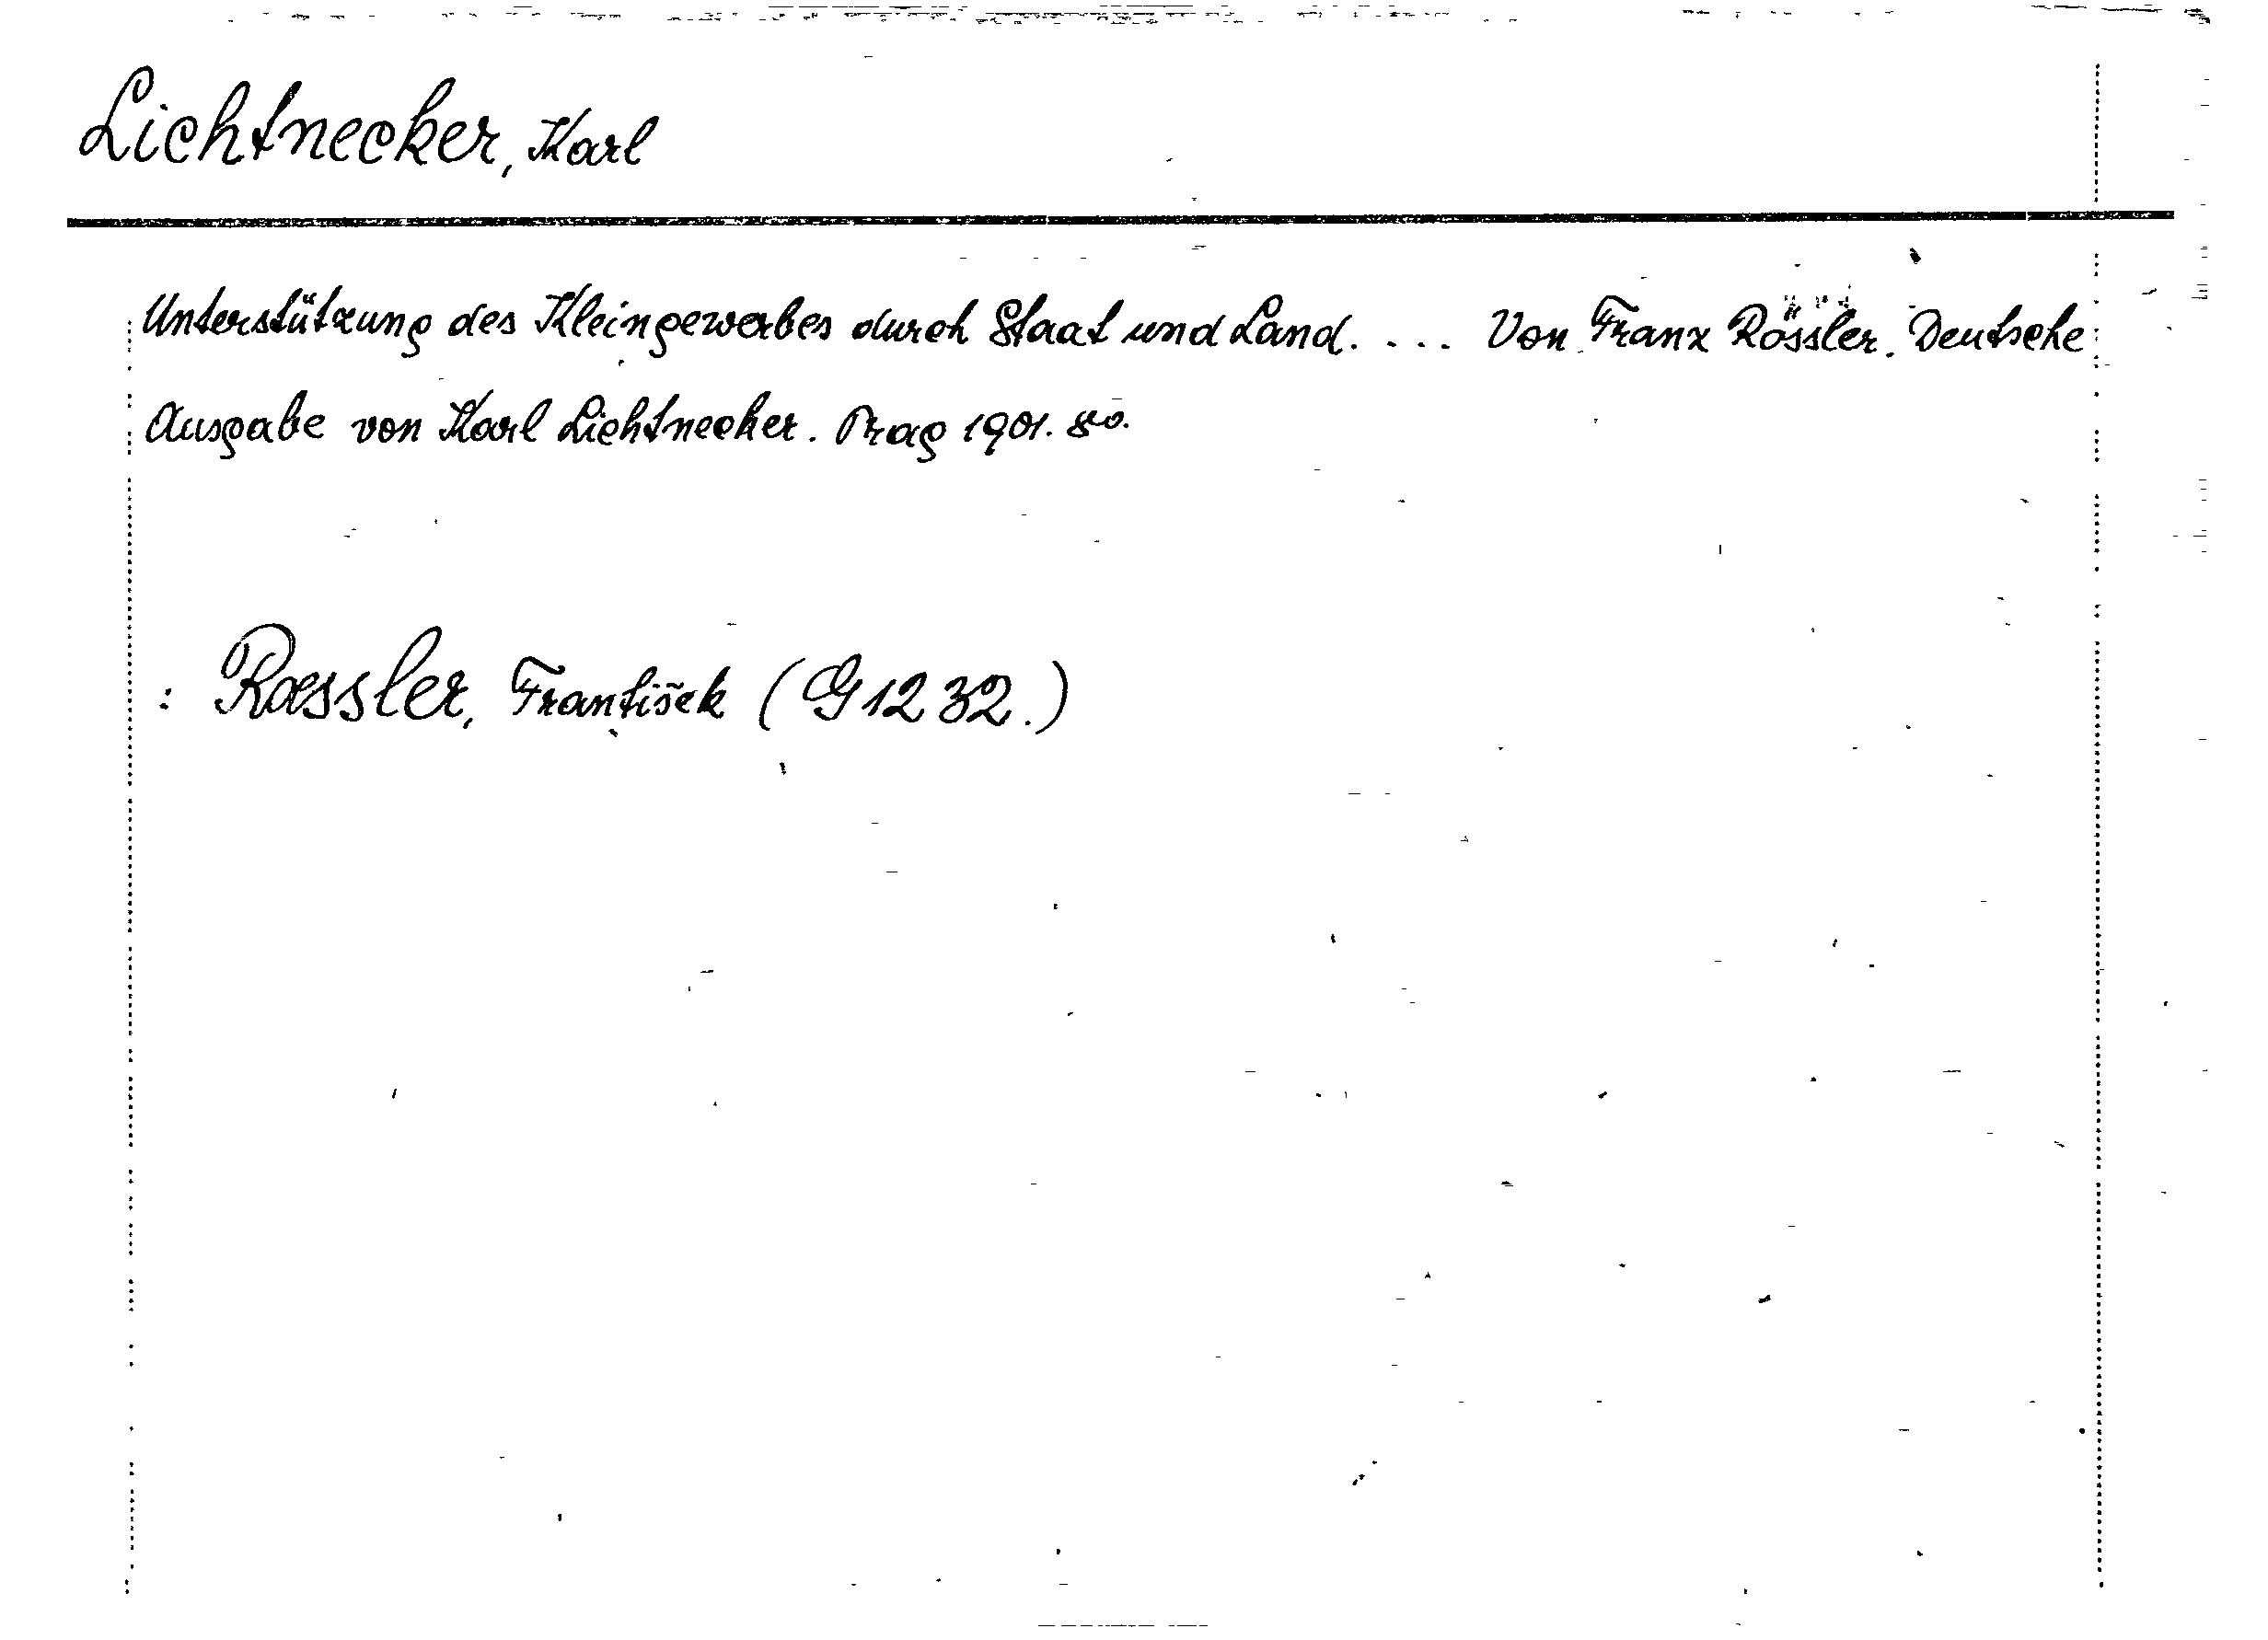 Lichtnecker, Karl
Unterstützung des Kleingewerbes durch Staat und Land. ... Von Franz Rössler. Deutsche
Ausgabe von Karl Lichtnecker. Prag 1901. 8o.
: Roessler, František (G 1232.)